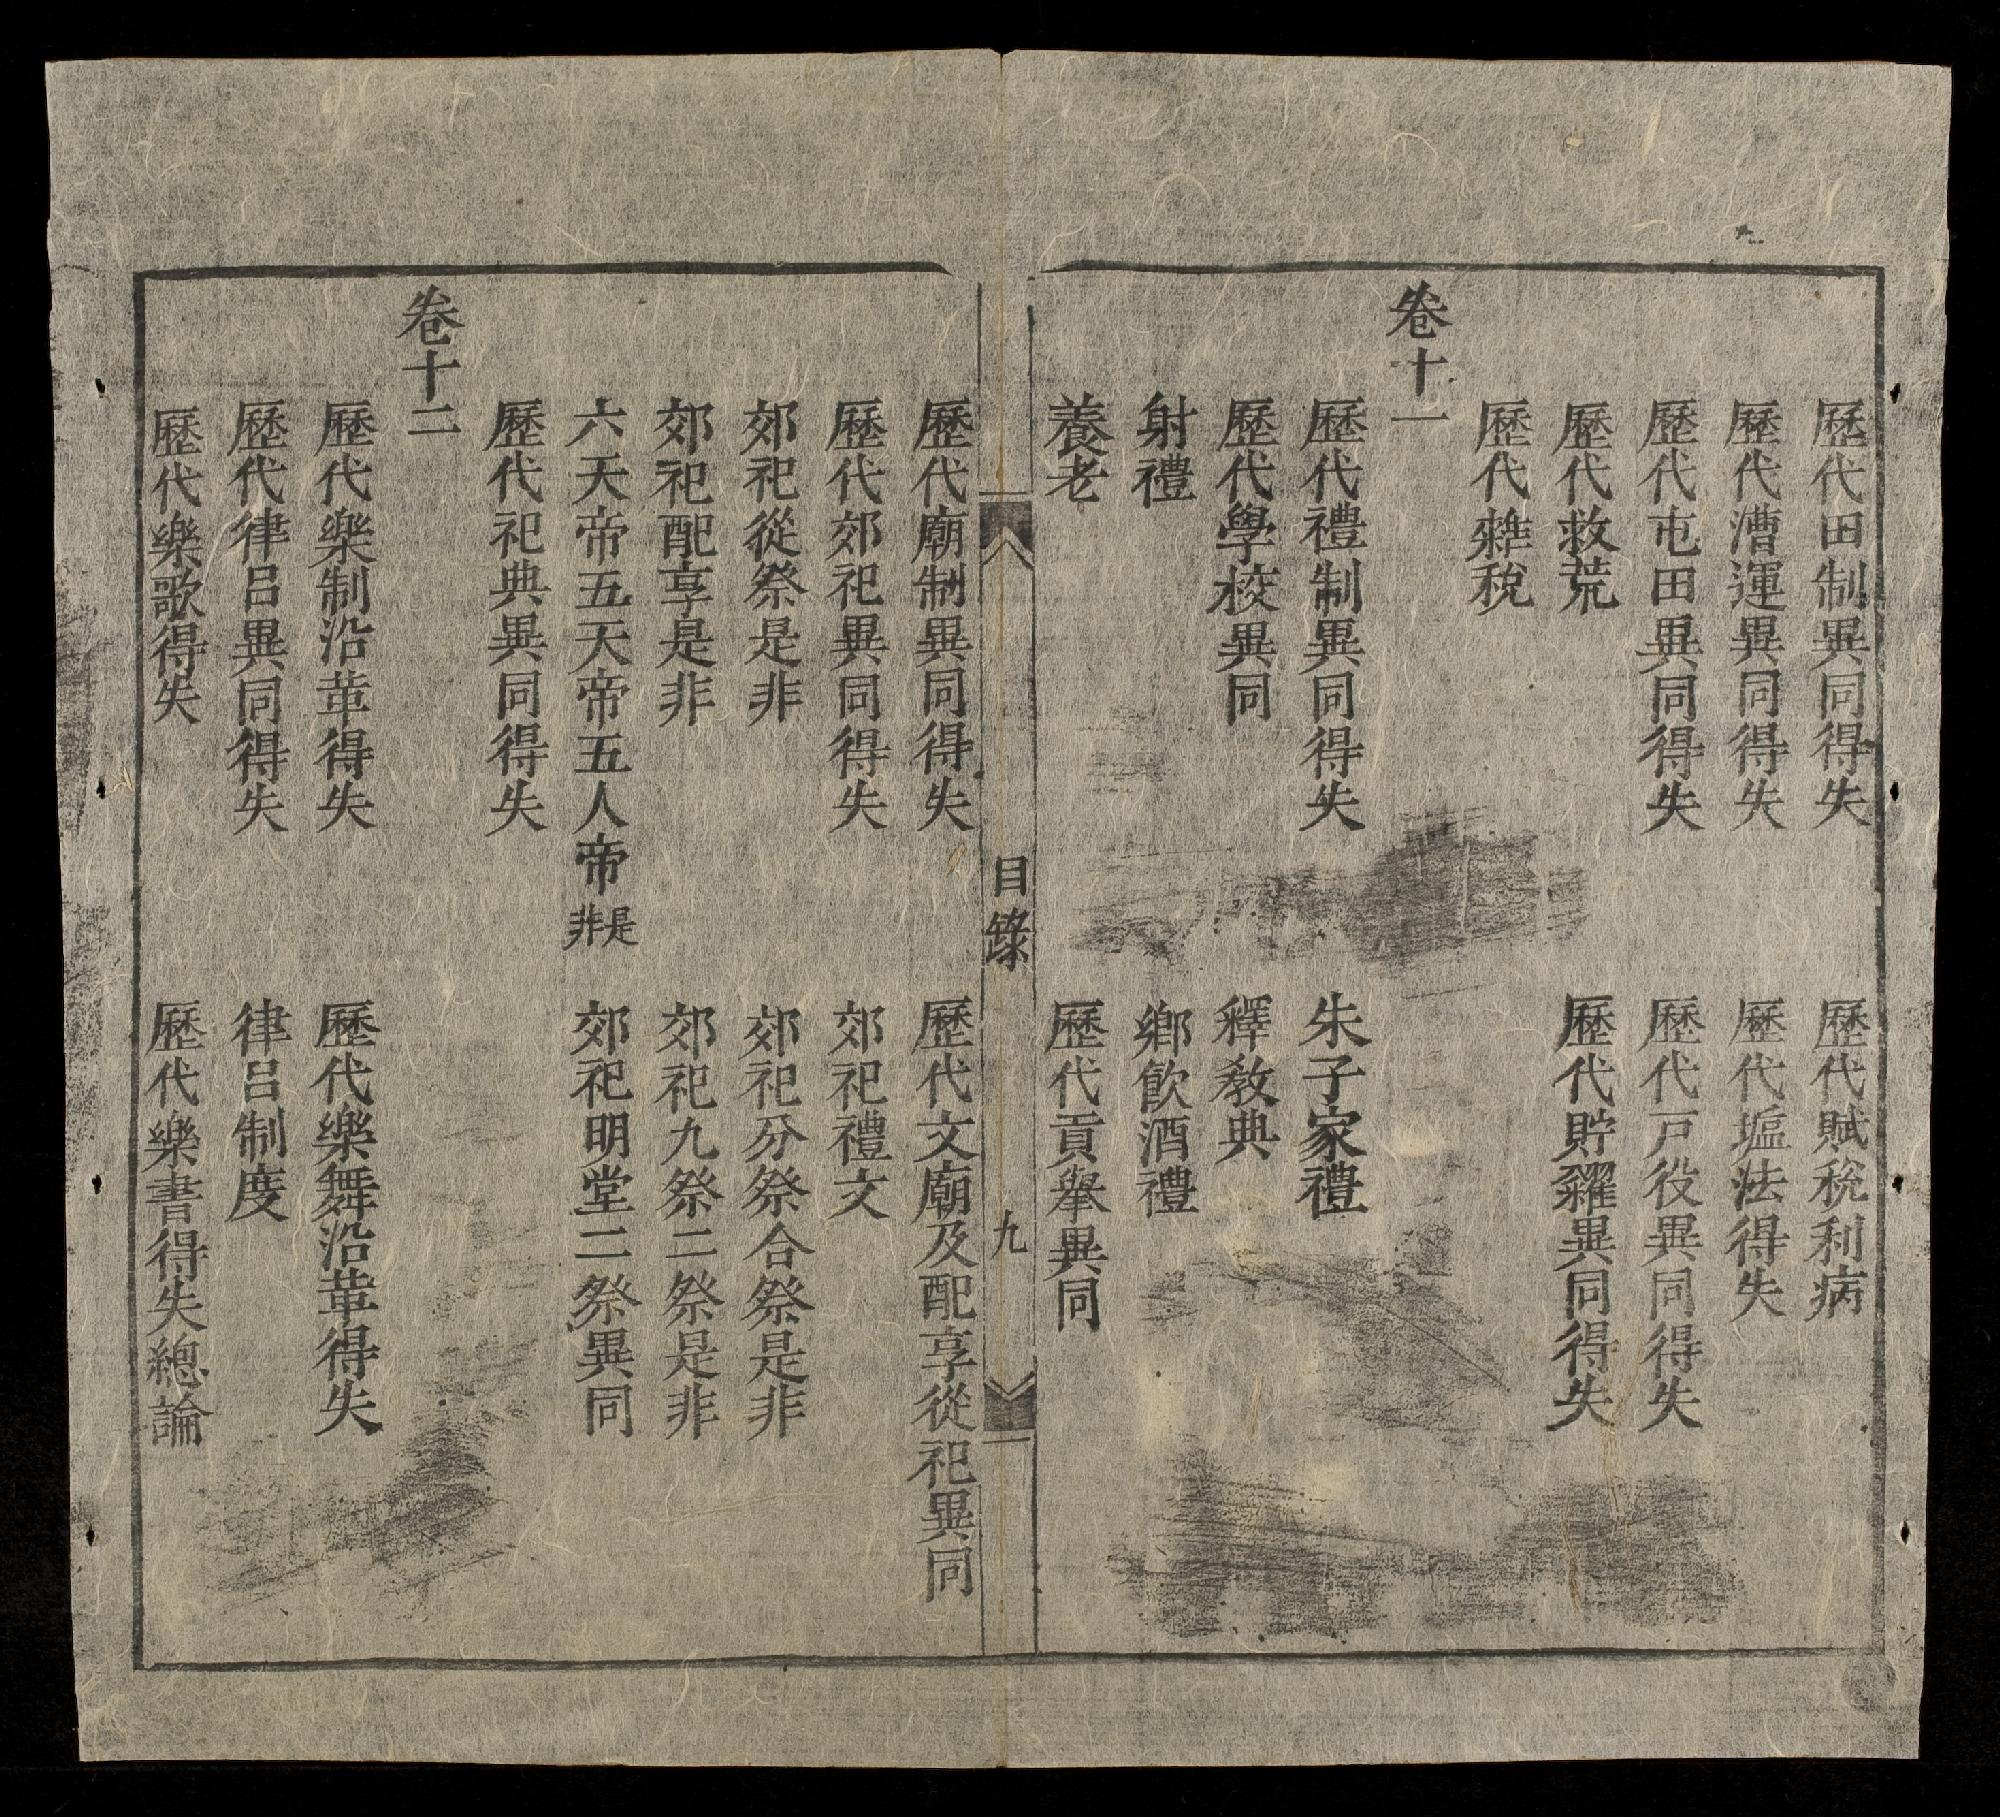 歷代田制異同得失　歷代賦稅利病
歷代漕運異同得失　歷代塩法得失
歷代屯田異同得失　歷代戸役異同得失
歷代救荒　歷代貯糴異同得失
歷代雜稅
卷十一
歷代禮制異同得失　朱子家禮
歷代學校異同　釋教典
射禮　鄉飲酒禮
養老　歷代貢舉異同
目錄　九
歷代廟制異同得失　歷代文廟及配享從祀異同
歷代郊祀異同得失　郊祀禮文
郊祀從祭是非　郊祀分祭合祭是非
郊祀配享是非　郊祀九祭二祭是非
六天帝五天帝五人帝是非　郊祀明堂二祭異同
歷代祀典異同得失
卷十二
歷代樂制沿革得失　歷代樂舞沿革得失
歷代律呂異同得失　律呂制度
歷代樂歌得失　歷代樂書得失總論